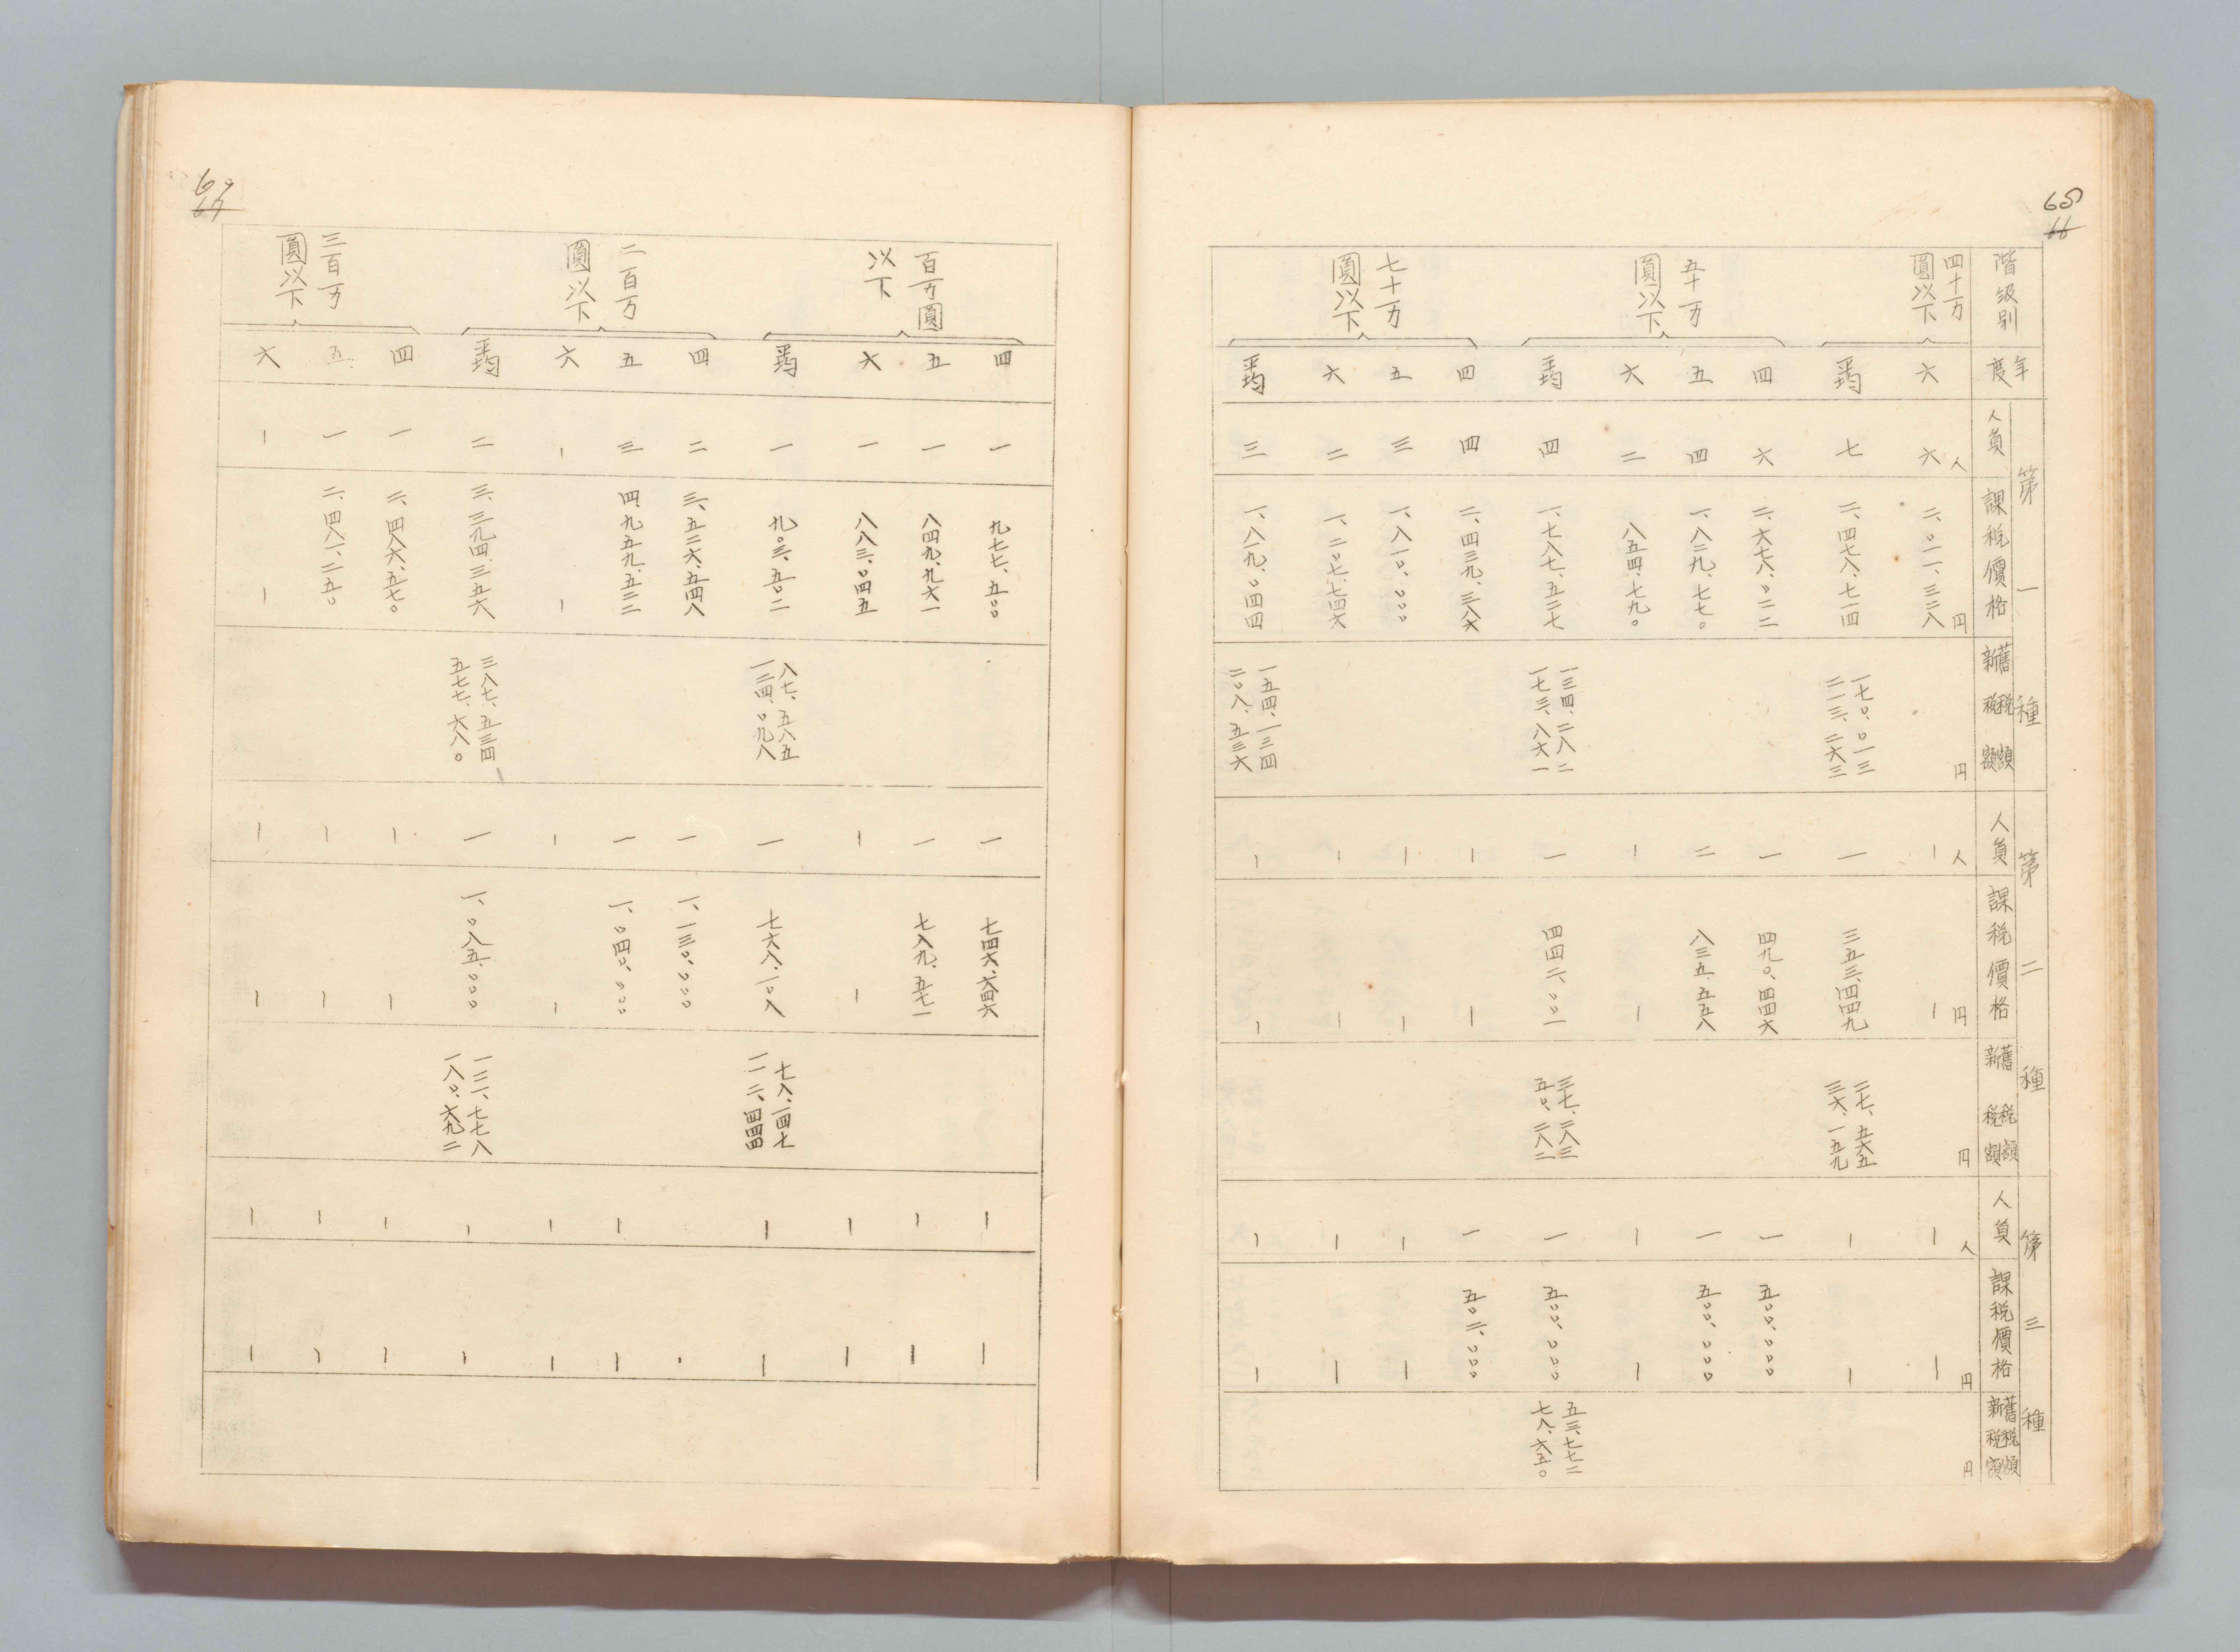 68
66
第一種 第二種 第三種
階級別 年度 人員 課税價格 舊税額 新税額 人員 課税價格 舊税額 新税額 人員 課税價格 舊税額 新税額
人 円 円 人 円 円 人 円 円
四十万圓以下
六 六 二、〇一一、三二八 ｜ ｜ ｜ ｜
平均 七 二、四七八、七一四 一七〇、〇一三 二一三、二六三 一 三五三、四四九 二七、五六五 三六、一五九 ｜ ｜
五十万圓以下
四 六 二、六七八、〇二二 一 四九〇、四四六 一 五〇〇、〇〇〇
五 四 一、八二九、七七〇 二 八三五、五五八 一 五〇〇、〇〇〇
六 二 八五四、七九〇 ｜ ｜ ｜ ｜
平均 四 一、七八七、五二七 一三四、二八二 一七三、八六一 一 四四二、〇〇一 三七、二八三 五〇、二八二 一 五〇〇、〇〇〇 五三、七七二 七八、六五〇
七十万圓以下
四 四 二、四三九、三八六 ｜ ｜ 一 五〇二、〇〇〇
五 三 一、八一〇、〇〇〇 ｜ ｜ ｜ ｜
六 二 一、二〇七、七四六 ｜ ｜ ｜ ｜
平均 三 一、八一九、〇四四 一五四、一三四 二〇八、五三六 ｜ ｜ ｜ ｜
69
67
百万圓以下
四 一 九七七、五〇〇 一 七四六、六四六 ｜ ｜
五 一 八四九、九六一 一 七八九、五七一 ｜ ｜
六 一 八八三、〇四五 ｜ ｜ ｜ ｜
平均 一 九〇三、五〇二 八七、五八五 一三四、〇九八 一 七六八、一〇八 七八、一四七 一一二、四四四 ｜ ｜
二百万圓以下
四 二 三、五二六、五四八 一 一、一三〇、〇〇〇
五 三 四、九五九、五二二 一 一、〇四〇、〇〇〇 ｜ ｜
六 ｜ ｜ ｜ ｜ ｜ ｜
平均 二 三、三九四、三五六 三八七、五三四 五七七、六八〇 一 一、〇八五、〇〇〇 一三一、七七八 一八〇、六九二 ｜ ｜
三百万圓以下
四 一 二、四八六、五七〇 ｜ ｜ ｜ ｜
五 一 二、四八一、二五〇 ｜ ｜ ｜ ｜
六 ｜ ｜ ｜ ｜ ｜ ｜